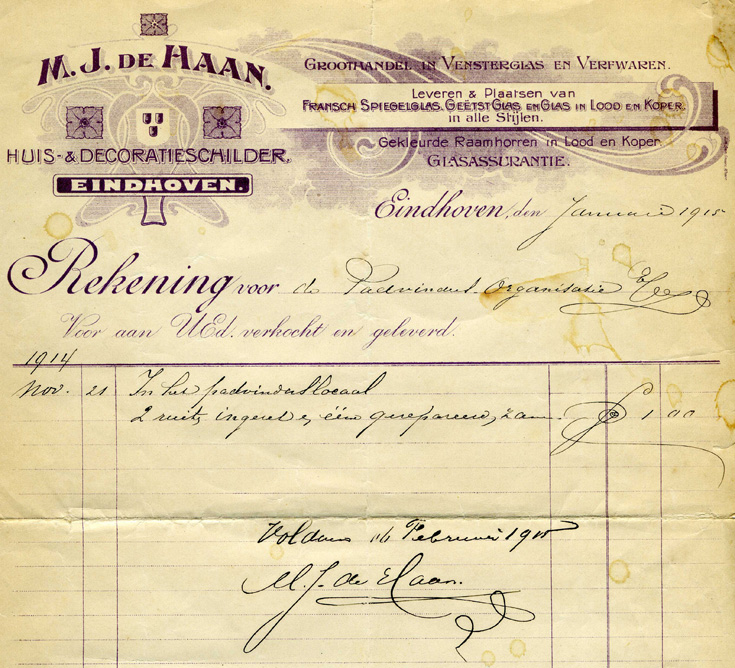 M. J. DE HAAN.
HUIS- & DECORATIESCHILDER,
EINDHOVEN.
GROOTHANDEL IN VENSTERGLAS EN VERFWAREN.
Leveren & Plaatsen van
FRANSCH SPIEGELGLAS. GEËTST GLAS EN GLAS IN LOOD EN KOPER.
in alle Stijlen.
Gekleurde Raamhorren in Lood en Koper
GLASASSURANTIE.
Eindhoven, den Januari 1915
Rekening voor de Padvinders Organisatie
Voor aan UEd. verkocht en geleverd.
1914
Nov. 21 In het padvinderslocaal
2 ruitz ingezet en één gerepareerd, zam. f 1 00
Voldaan Februari 1915
M. J. de Haan.